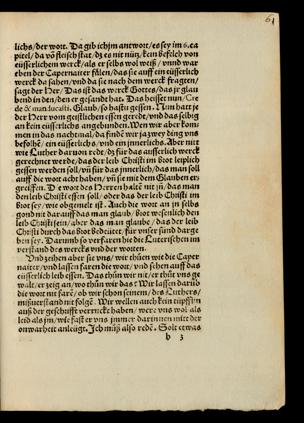 61
lichs/der wort. Da gib ich jm antwort/es sey im 6. ca
pitel/da võ fleisch stat/ dz es nit nütz/kein befelch von
eüsserlichem werck/als er selbs wol weiß/ vnnd war
eben der Capernaiter fälen/das sie auff ein eüsserlich
werck da sahen/vnd da sie nach dem werck fragten/
sagt der Her/Das ist das werck Gottes/das jr glau
bend in den/den er gesandt hat. Das heisset nun/Cre
de & manducasti. Glaub/so hastu gessen. Nun hatt je
der Herr vom geistlichen essen geredt/vnd das selbig
an kein eüsserlichs angebunden. Wen wir aber kom̃
men in das nachtmal/da findẽ wir ja zwey ding vns
befolhẽ/ein eüsserlichs/vnd ein jnnerlichs. Aber nit
wie Luther daruon redt/ dz für das ausserlich werck
gerechnet werde/das der leib Christi im brot leiplich
gessen werden soll/vñ für das jnnerlich/das man soll
auff die wort acht haben/vñ sie mit dem Glauben er-
greiffen. Die wort des Herren halte nit jñ/das man
den leib Christi essen soll/oder das der leib Christi im
brot sey/wie obgemelt ist. Auch die wort an jn selbs
gond nit darauff das man glaub/brot wesenlich den
leib Christi sein/aber das man glaube/das der leib
Christi durch das brot bedeütet/für vnser sünd darge
ben sey. Darumb so verfaren hie die Luterischen im
verstand des wercks vnd der worten.
Vnd zeihen aber sie vns/wir thüen wie die Caper
naiter/vnd lassen faren die wort/vnd sehen auff das
eüsserlich leib essen. Das thün wir nit/er thüt vns ge
walt/er zeig an/wo thün wir das? Wir lassen darũb
die wort nit farẽ/ob wir schon seinem/des Luthers/
mißuerstand nit folgẽ. Wir wellen auch kein tüpflin
auß der geschrifft verruckt haben/were vns wol als
leid als jm/wie fast er vns jmmer darinnen mit der
onwarheit anleügt. Ich můß also redẽ. Solt etwas
b 3